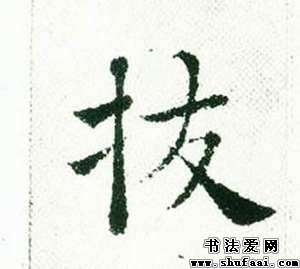 抜
书法爱网
www.shufaai.com